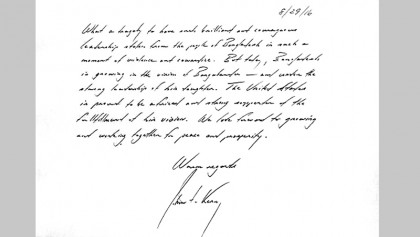 8/29/16
What a tragedy to have such brilliant and courageous
leadership stolen from the people of Bangladesh in such a
moment of violence and cowardice. But today, Bangladesh
is growing in the vision of Bangabandhu — and under the
strong leadership of his daughter. The United States
is proud to be a friend and strong supporter of the
fulfillment of his vision. We look forward to growing
and working together for peace and prosperity.
Warm regards
John F. Kerry